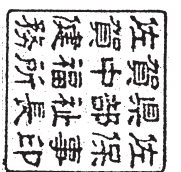 佐賀県佐
賀中部保
健福祉事
務所長印